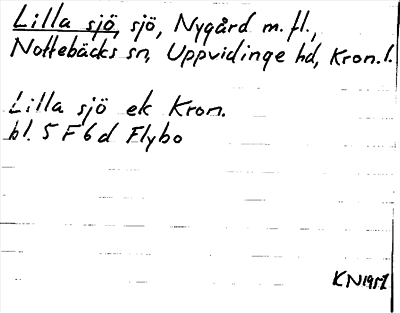 Lilla sjö, sjö, Nygård m.fl.,
Nottebäcks sn, Uppvidinge hd, Kron.l.
Lilla sjö ek Kron.
bl. 5 F 6 d Flybo
KN1957